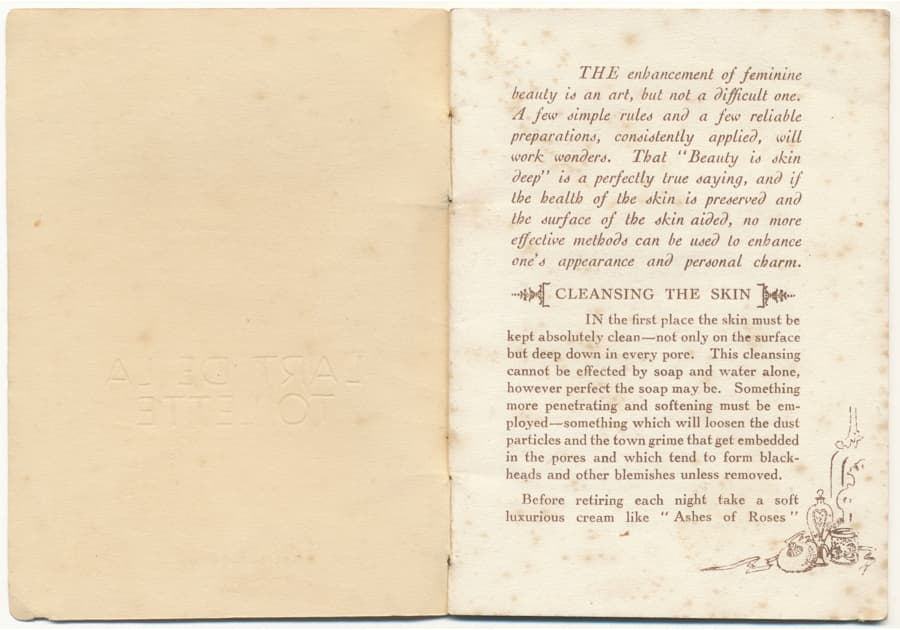 L'ART DE LA
TOILETTE
THE enhancement of feminine
beauty is an art, but not a difficult one.
A few simple rules and a few reliable
preparations, consistently applied, will
work wonders. That "Beauty is skin
deep" is a perfectly true saying, and if
the health of the skin is preserved and
the surface of the skin aided, no more
effective methods can be used to enhance
one's appearance and personal charm.
CLEANSING THE SKIN
IN the first place the skin must be
kept absolutely clean—not only on the surface
but deep down in every pore. This cleansing
cannot be effected by soap and water alone,
however perfect the soap may be. Something
more penetrating and softening must be em-
ployed—something which will loosen the dust
particles and the town grime that get embedded
in the pores and which tend to form black-
heads and other blemishes unless removed.
Before retiring each night take a soft
luxurious cream like "Ashes of Roses"